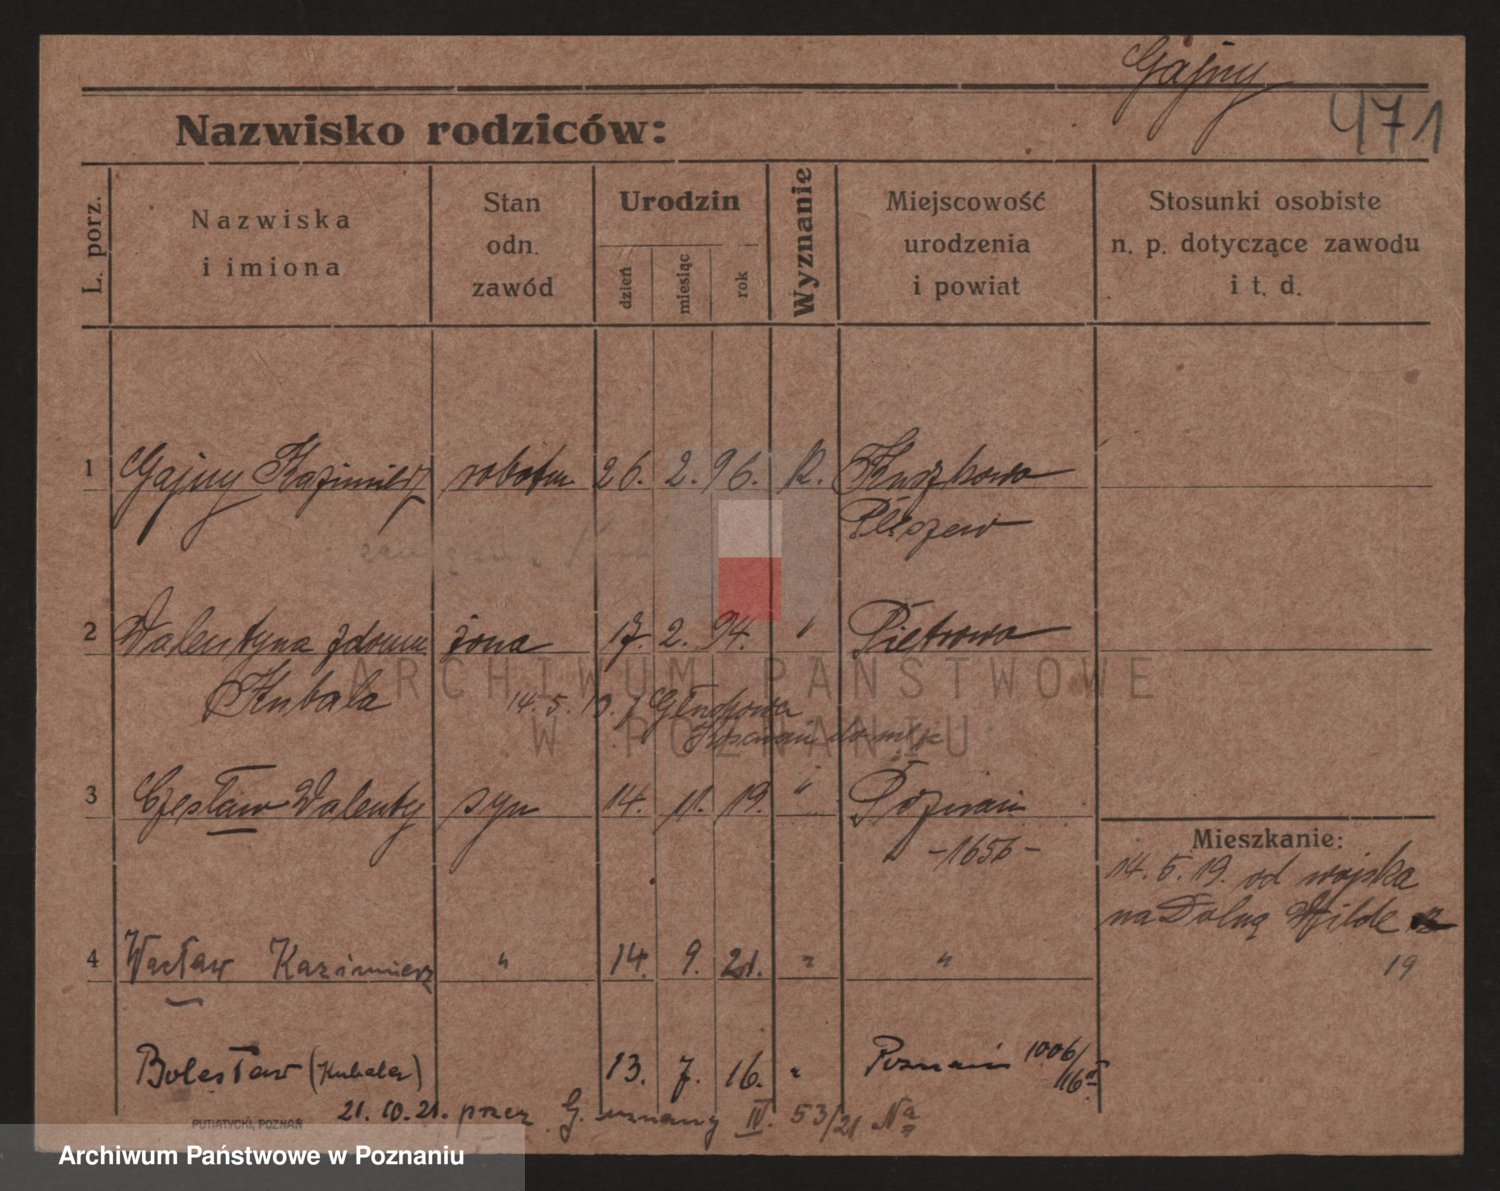 Gajny
471
Nazwisko rodziców:
L. porz.
Nazwiska
i imiona
Stan
odn.
zawód
Urodzin
dzień
miesiąc
rok
Wyznanie
Miejscowość
urodzenia
i powiat
Stosunki osobiste
n. p. dotyczące zawodu
i t. d.
1 Gajny Kazimierz robotn. 26. 2. 96. K.
Pleszew
2 Walentyna zdomu żona 17. 2. 94. " Pietrowo
Kubala
14. 5. 19.
3 Czesław Walenty syn 14. 11. 19. " Poznań
-1656-
Mieszkanie:
14. 5. 19. od wojska
na Dolną Wilde
19
4 Wacław Kazimierz " 14. 9. 21. " "
Bolesław (Kubala) 13. 7. 16. " Poznań 1006/
21. 10. 21. przez G. uznany IV. 53/21
PUTIATYCKI, POZNAŃ
ARCHIWUM PAŃSTWOWE
W POZNANIU
Archiwum Państwowe w Poznaniu